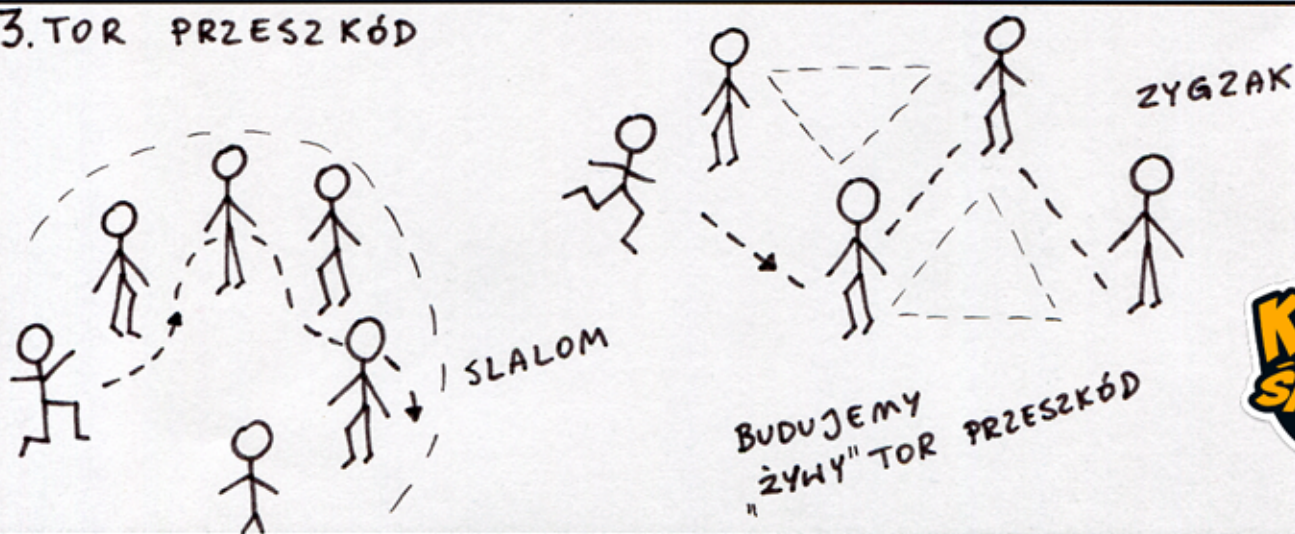 3. TOR PRZESZKÓD
ZYGZAK
SLALOM
BUDUJEMY
„ŻYWY" TOR PRZESZKÓD